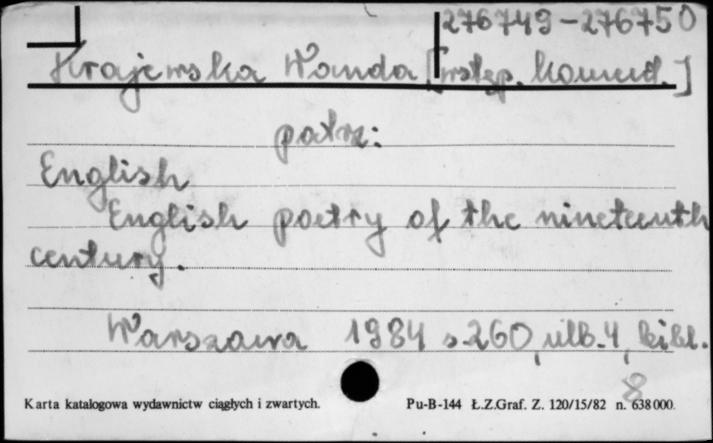 276749-276750
Krajewska Wanda [wstęp. koment.]
patrz:
English
English poetry of the nineteenth
century.
Warszawa 1984 s.260, ulb.4, bibl.
8
Karta katalogowa wydawnictw ciągłych i zwartych. Pu-B-144 Ł.Z.Graf. Z. 120/15/82 n. 638000.